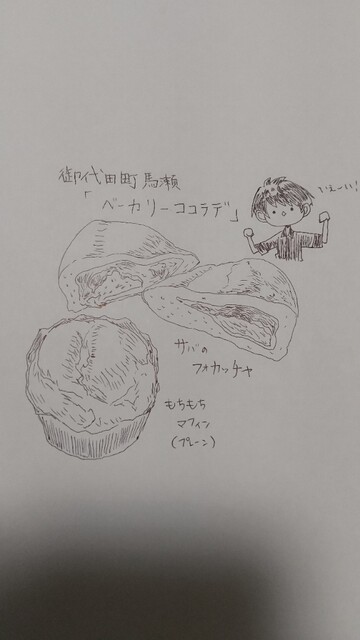 御代田町馬瀬
「ベーカリーココラデ」
いぇーい!
サバの
フォカッチャ
もちもち
マフィン
(プレーン)